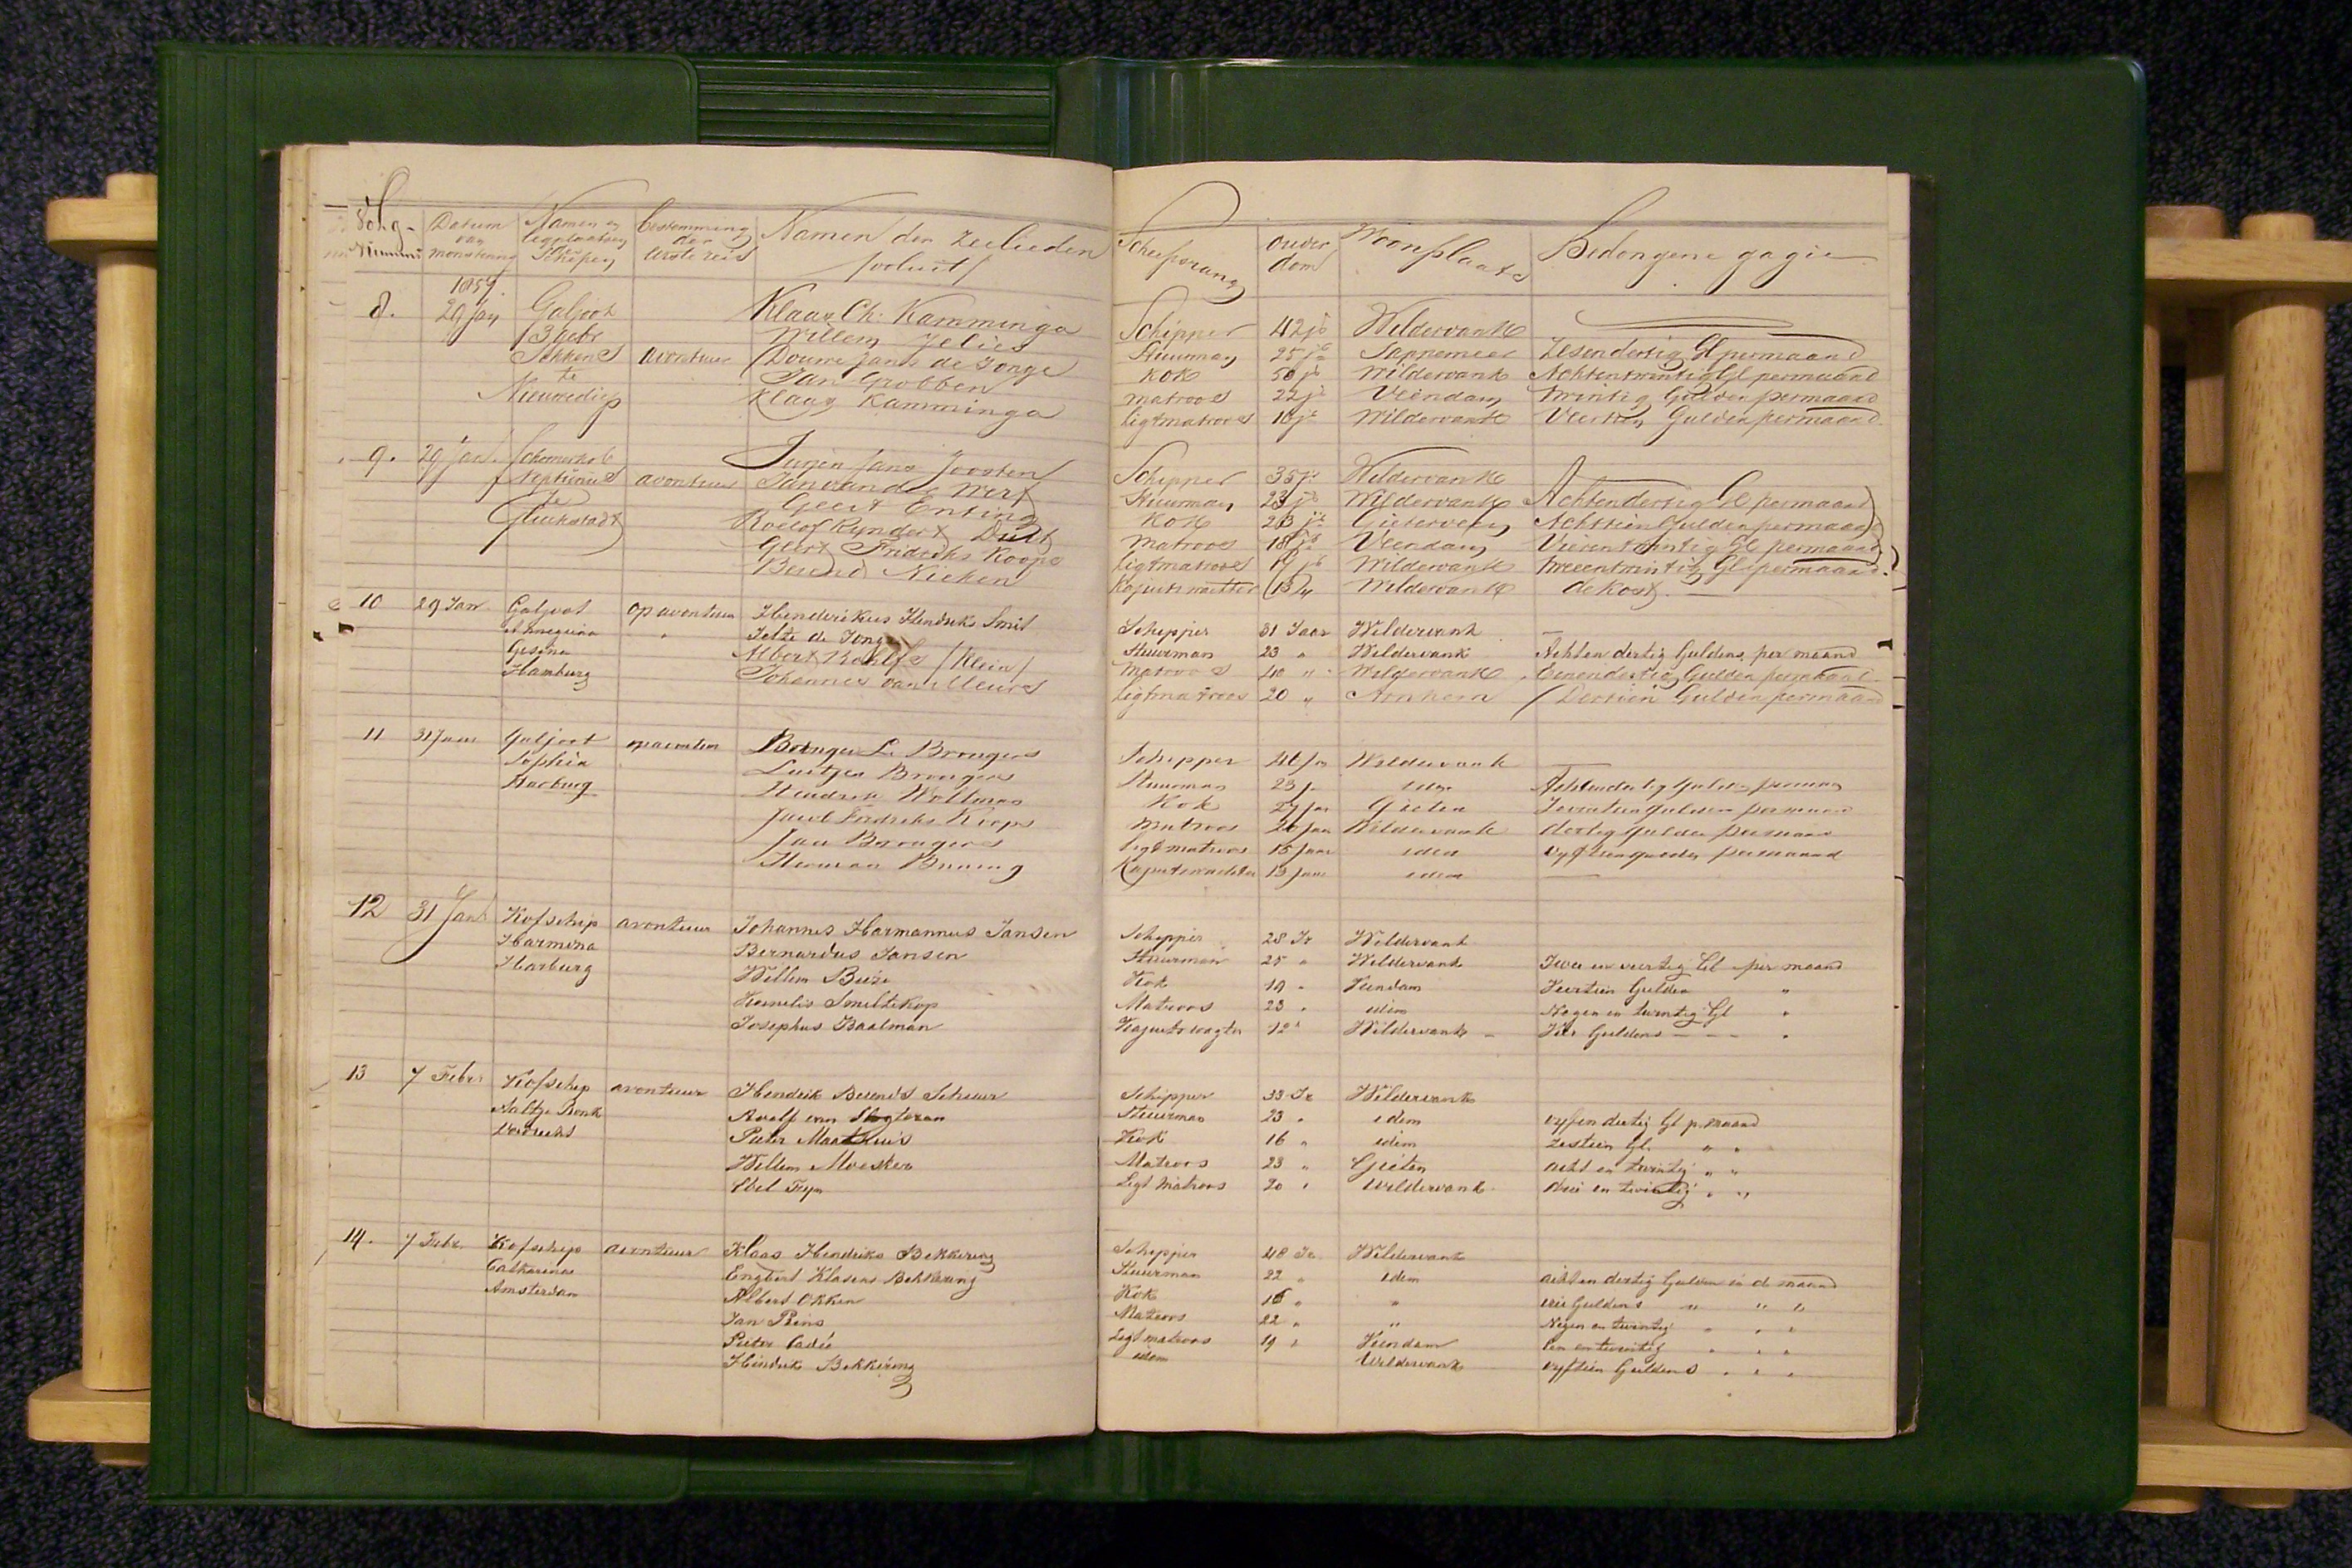 Volg-Nummer Datum van monstering Namen en legplaatsen Schepen bestemming der eerste reis Namen der Zeelieden /voluit/ Scheepsrang ouderdom Woonplaats Bedongene gagie
1857
8. 29 Jan Galjoot Klaas Ch: Kamminga Schipper 42 jr Wildervank
3 Gebr Willem Jelies Stuurman 25 jr Sappemeer Zesendertig Gl permaand
Sikkens avontuur Douwe Jans de Jonge Kok 50 jr Wildervank Achtentwintig Gl permaand
te Jan Grobben matroos 22 jr Veendam twintig Gulden permaand
Nieuwediep Klaas Kamminga ligtmatroos 16 jr Wildervank Veertien Gulden permaand
9. 29 Jan. Schoenerkof Jurjen Jans Joosten Schipper 35 jr Wildervank
Neptunus avontuur Jan van der Werf Stuurman 23 jr Wildervank Achtendertig Gl permaand
te Geert Enting Kok 23 jr Gieterveen Achttien Gulden permaand
Gluckstadt Roelof Rynderts Duit Matroos 18 jr Veendam Vierentwintig Gl permaand
Geert Fredriks Koops Ligtmatroos 19 jr Wildervank tweeentwintig Gl permaand.
Berend Nieken Kajuitwachter 13 jr Wildervank de Kost.
10 29 Jan Galjoot op avontuur Hendrikus Hendriks Smit Schipper 31 Jaar Wildervank
Annegina " Jelte de Jonge Stuurman 23 " Wildervank Achten dertig Guldens per maand
Gesina Albert Roelfs /Klein/ Matroos 40 " Wildervank Eenendertig Gulden permaand
Hamburg Johannes van Meurs ligtmatroos 20 " Arnhem Dertien Gulden permaand
11 31 Jan Galjoot op avontuur Bronger L. Brongers Schipper 46 jr Wildervank
Sophia Luitjen Brongers Stuurman 23 j idem Achtendertig Gulden permaand
Harburg Hendrik Woltman Kok 27 jar Gieten Zeventien gulden permaand
Jacob Fredriks Koops Matroos 20 jaar Wildervank dertig Gulden permaand
Jan Brongers ligt matroos 15 jaar idem vyftien gulden permaand
Herman Buning Kajuitwachter 13 jaar idem
12 31 Jan Kofschip avontuur Johannes Harmannus Jansen Schipper 28 Jr Wildervank
Harmina Bernardus Jansen Stuurman 25 " Wildervank Twee en veertig Gl per maand
Harburg Willem Buse Kok 19 " Veendam Veertien Gulden "
Kornelis Smeltekop Matroos 23 " idem Negen en twintig Gl "
Josephus Baalman Kajuitswagter 12 " Wildervank Vier Guldens "
13 7 Febr Kofschip avontuur Hendrik Berends Schuur Schipper 33 Jr Wildervank
Aaltje Bonk Roelf van Slogteren Stuurman 23 " idem vyfen dertig Gl p. maand
Dordrecht Pieter Maathuis Kok 16 " idem zestien Gl. " "
Willem Moesker Matroos 23 " Gieten acht en twintig " "
Ebel Fyn Ligt Matroos 20 " Wildervank drie en twintig " "
14. 7 Febr. Kofschip avontuur Klaas Hendriks Bekkering Schipper 48 Jr Wildervank
Catharina Engbert Klasens Bekkering Stuurman 22 " idem achten dertig Gulden in d maand
Amsterdam Albert Okken Kok 16 " " Guldens " " "
Jan Prins Matroos 22 " " Negen en twintig " " "
Pieter Cadé Ligt matroos 19 " Veendam Een en twintig " " "
Hindrik Bekkering idem Wildervank vyftien Guldens " " "